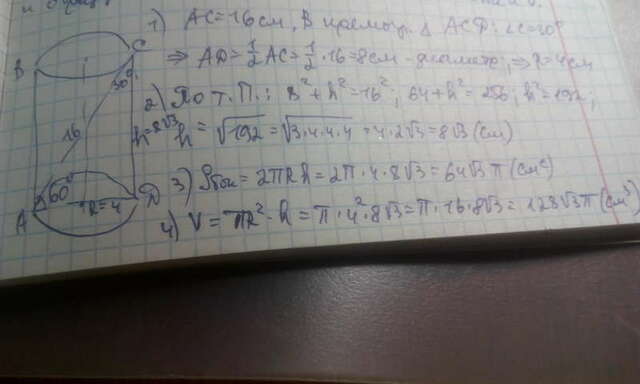 1) AC=16см, В прямоуг. Δ ACD: ∠C=30°
⇒ AD=1/2 AC=1/2·16=8см - диаметр, ⇒ R=4см
2) По т. П.: 8²+h²=16²; 64+h²=256; h²=192;
h=√192=√3·4·4·4=4·2√3=8√3 (см)
3) Sбок=2πRh=2π·4·8√3=64√3π (см²)
4) V=πR²·h=π·4²·8√3=π·16·8√3=128√3π (см³)
B
C
30°
16
h=8√3
60°
R=4
A
D